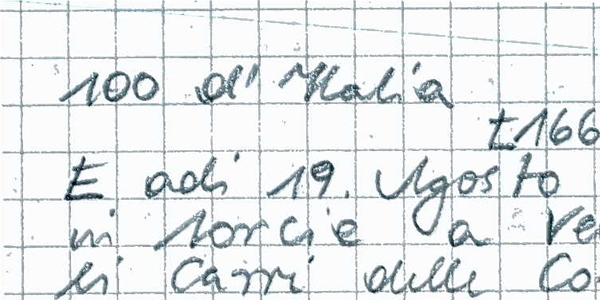 100 d'Italia
£166
E adi 19. Agosto
in torcie a Ve
li Carri delle Co